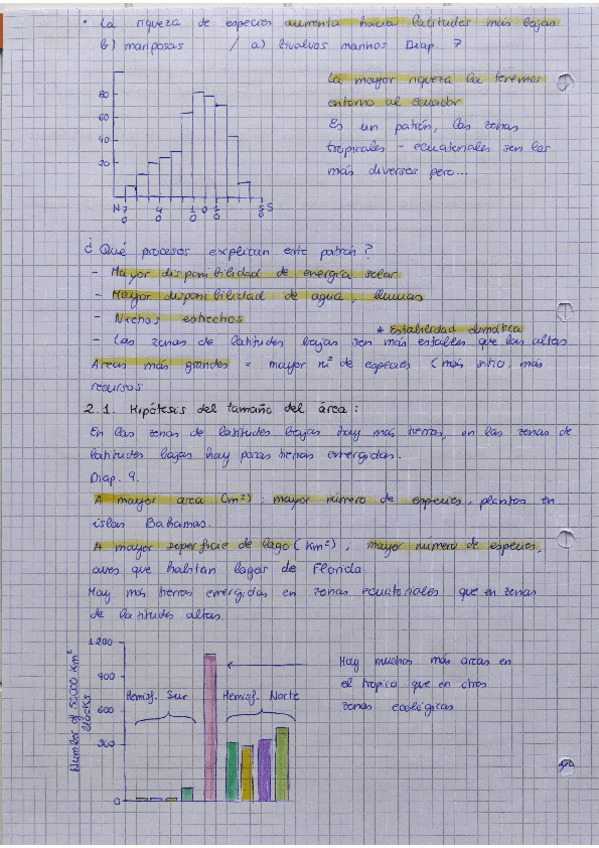 · La riqueza de especies aumenta hacia latitudes más bajas
b) mariposas / a) bivalvos marinos Diap. 7
La mayor riqueza la tenemos
entorno al ecuador
Es un patrón, las zonas
tropicales - ecuatoriales son las
más diversas pero...
80
60
40
20
N 70 40 10 0 10 50 S
¿Qué procesos explican este patrón?
- Mayor disponibilidad de energía solar
- Mayor disponibilidad de agua, lluvias
- Nichos estrechos
* Estabilidad climática
- Las zonas de latitudes bajas son más estables que las altas
Áreas más grandes = mayor nº de especies (más sitio, más
recursos
2.1. Hipótesis del tamaño del área:
En las zonas de latitudes bajas hay más tierras, en las zonas de
latitudes bajas hay pocas tierras emergidas.
Diap. 9.
A mayor área (m²); mayor número de especies, plantas en
islas Bahamas.
A mayor superficie de lago (km²), mayor número de especies,
aves que habitan lagos de Florida
Hay más tierras emergidas en zonas ecuatoriales que en zonas
de latitudes altas
Number of 50000 km² blocks
1200
900
600
300
0
Hemisf. Sur
Hemisf. Norte
Hay muchas más áreas en
el trópico que en otras
zonas ecológicas